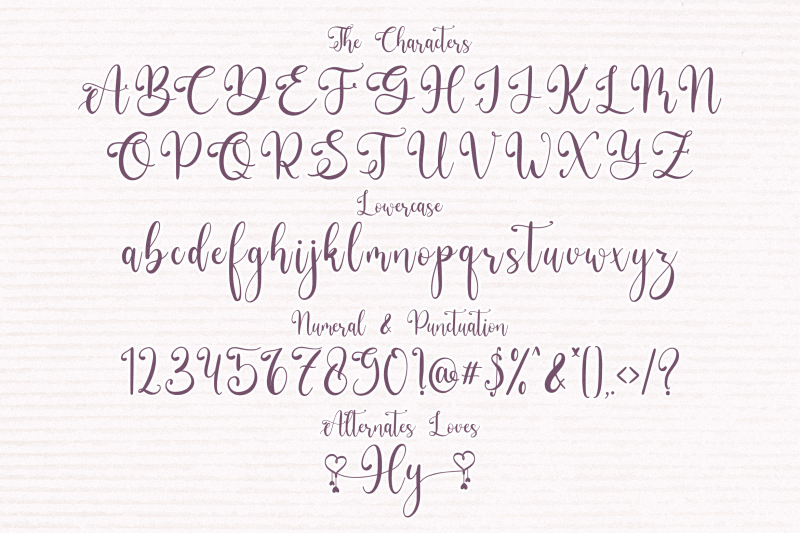 The Characters
ABCDEFGHIJKLMN
OPQRSTUVWXYZ
Lowercase
abcdefghijklmnopqrstuvwxyz
Numeral & Punctuation
1234567890!@#$%^&*(),.<>/?
Alternates Loves
Hy